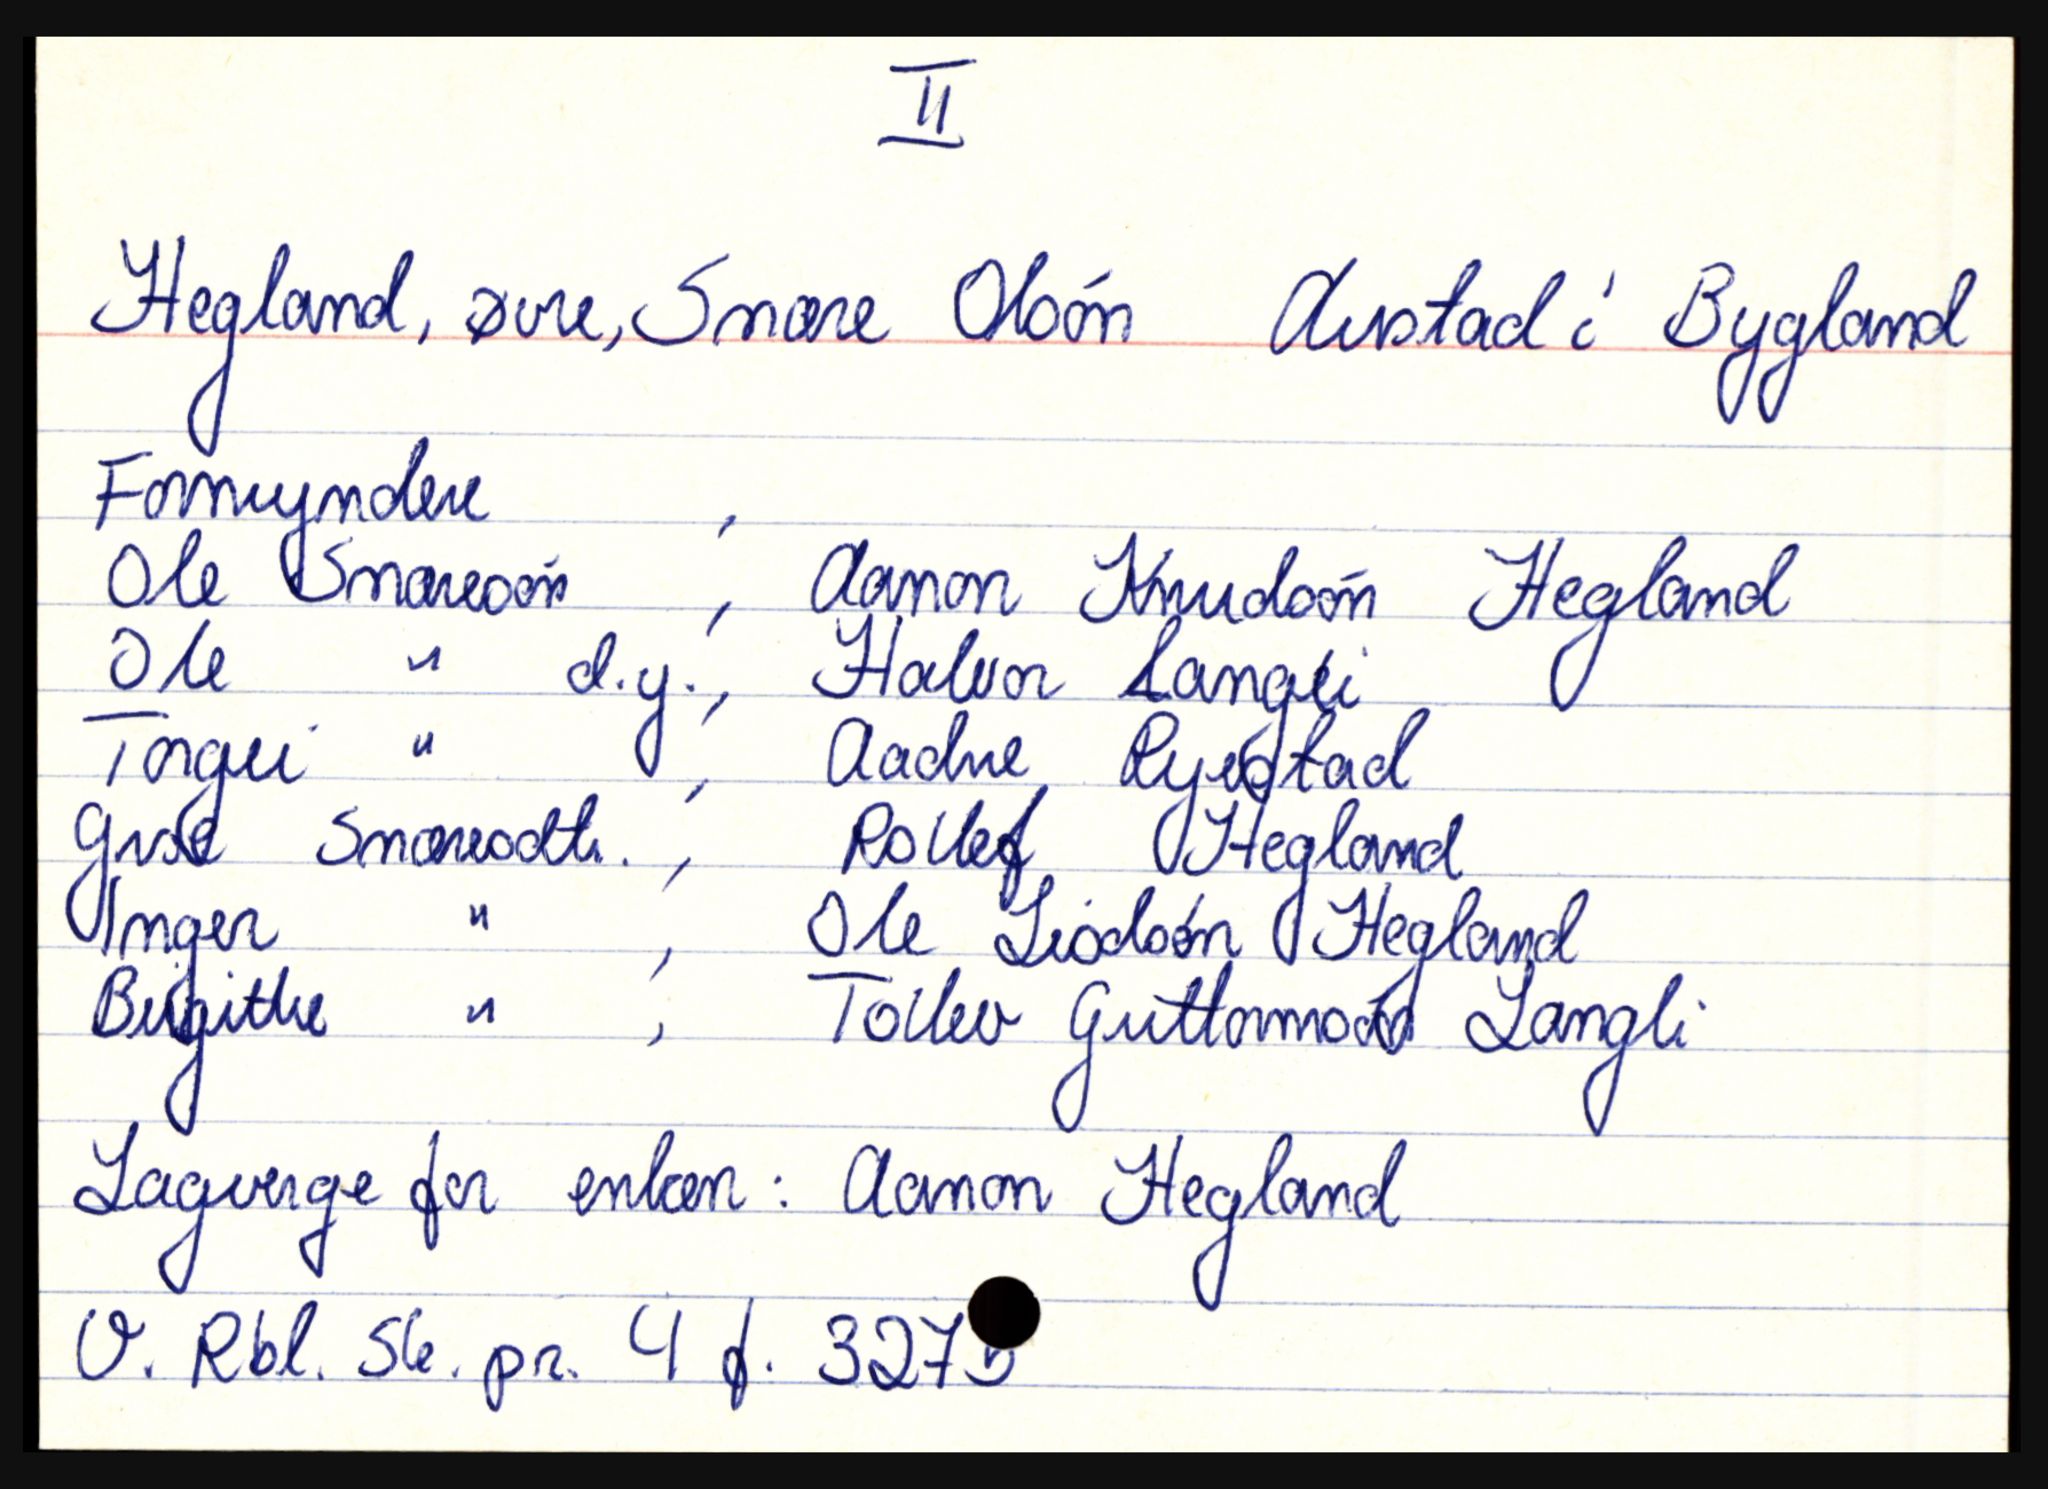 II
Hegland, øvre, Snare Olsón Austad i Bygland
Formyndere ,
Ole Snaresón , Aanon Knudsón Hegland
Ole " d.y. , Halvor Langei
Torgei " , Aadne Rysstad
Snaresdtr. , Rollef Hegland
Inger " , Ole Hegland
Birgithe " , Tollev Langli
Lagverge for enken : Aanon Hegland
V. Rbl. Sk. pr. 4 f. 327